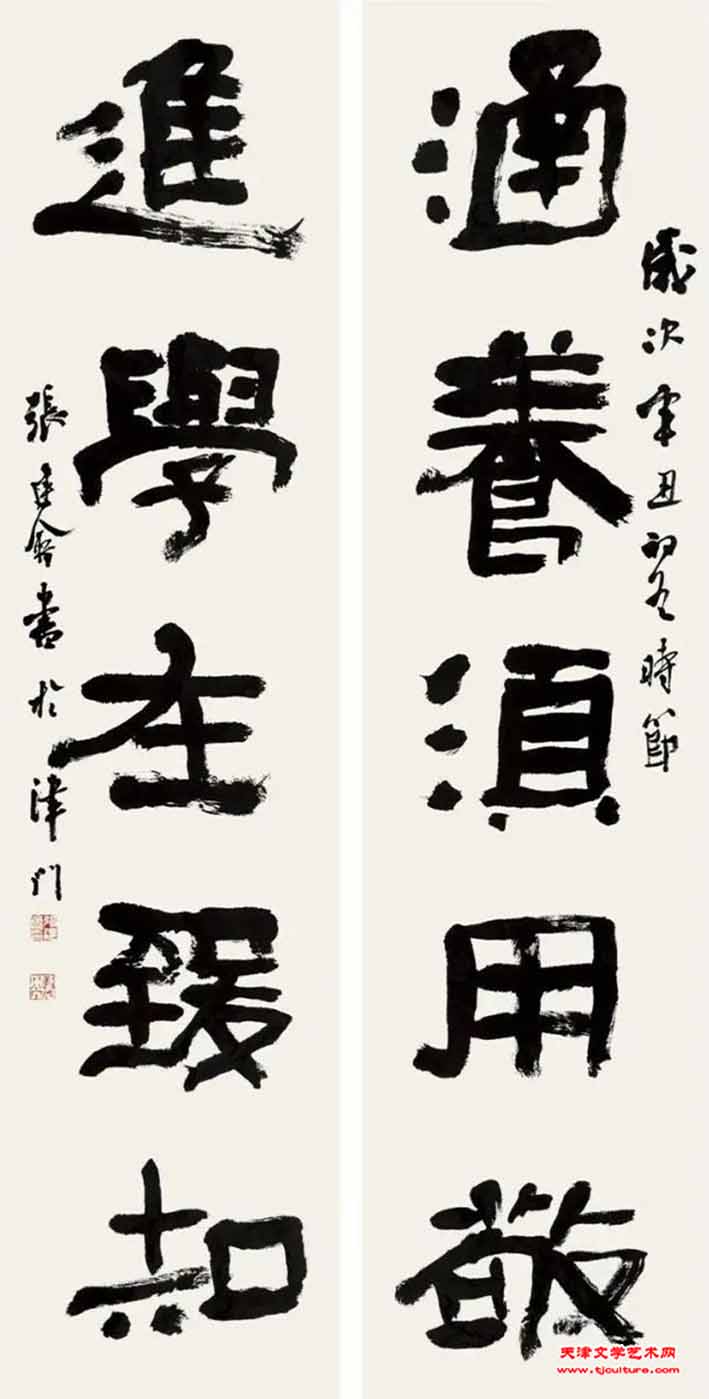 歲次辛丑初冬時節
涵養須用敬
進學在致知
張建會書於津門
天津文学艺术网
www.tjculture.com